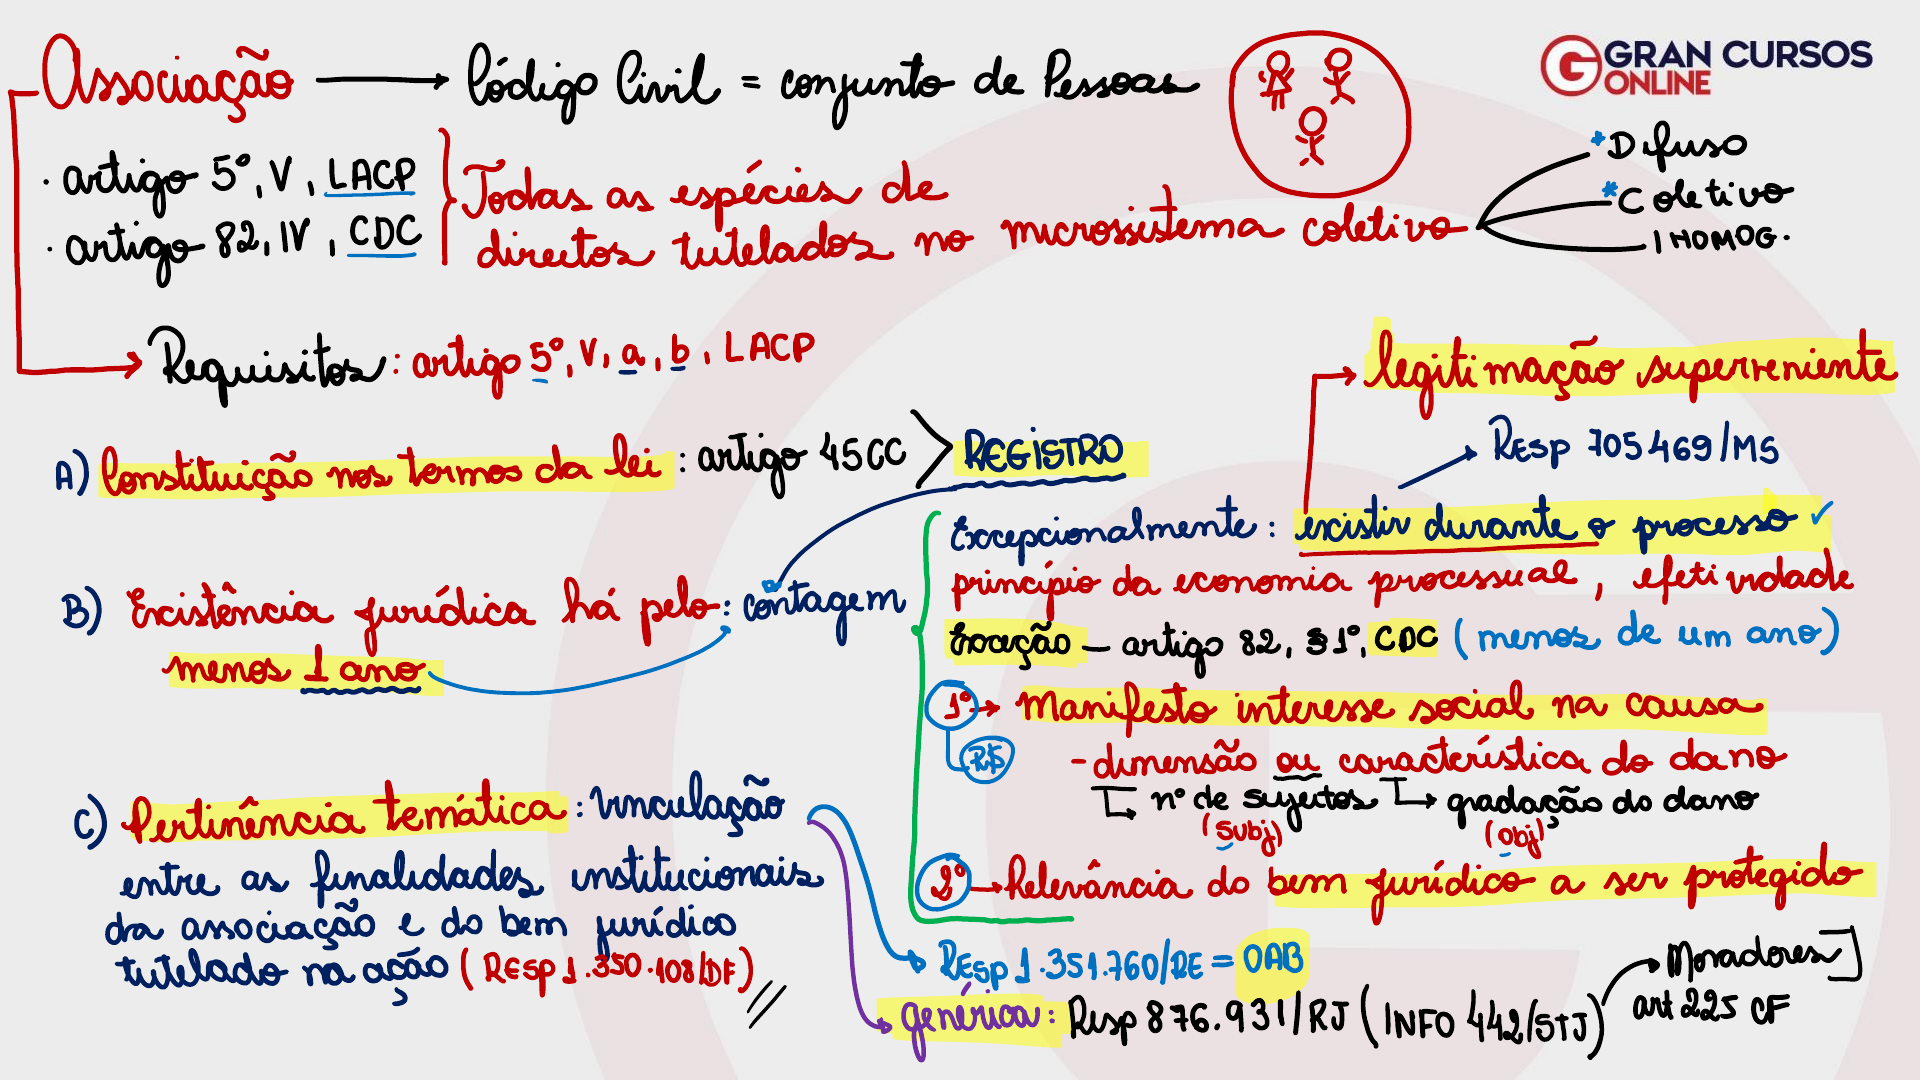 Associação → Código Civil = conjunto de Pessoas
GRAN CURSOS
ONLINE
· artigo 5º, V, LACP
· artigo 82, IV, CDC
Todas as espécies de
direitos tutelados no microssistema coletivo
* Difuso
* Coletivo
I HOMOG.
Requisitos: artigo 5º, V, a, b, LACP
A) Constituição nos termos da lei: artigo 45 CC > REGISTRO
B) Existência jurídica há pelo: contagem
menos 1 ano
legitimação superveniente
REsp 705469/MS
Excepcionalmente: existir durante o processo ✓
princípio da economia processual, efetividade
Exceção — artigo 82, §1º, CDC (menos de um ano)
1º → Manifesto interesse social na causa
R$
- dimensão ou característica do dano
nº de sujeitos → gradação do dano
(subj) (obj)
2º → Relevância do bem jurídico a ser protegido
C) Pertinência temática: vinculação
entre as finalidades institucionais
da associação e do bem jurídico
tutelado na ação (REsp 1.350.108/DF)
REsp 1.351.760/RE = OAB
genérica: Resp 876.931/RJ (INFO 442/STJ)
Moradores
art 225 CF